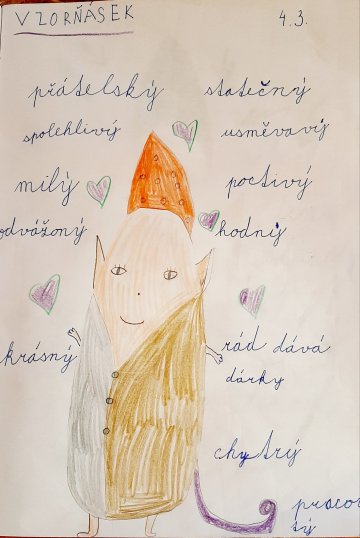 VZORŇÁSEK 4.3.
přátelský statečný
spolehlivý usměvavý
milý poctivý
odvážoný hodný
krásný rád dává
dárky
chytrý
pracovi
tý